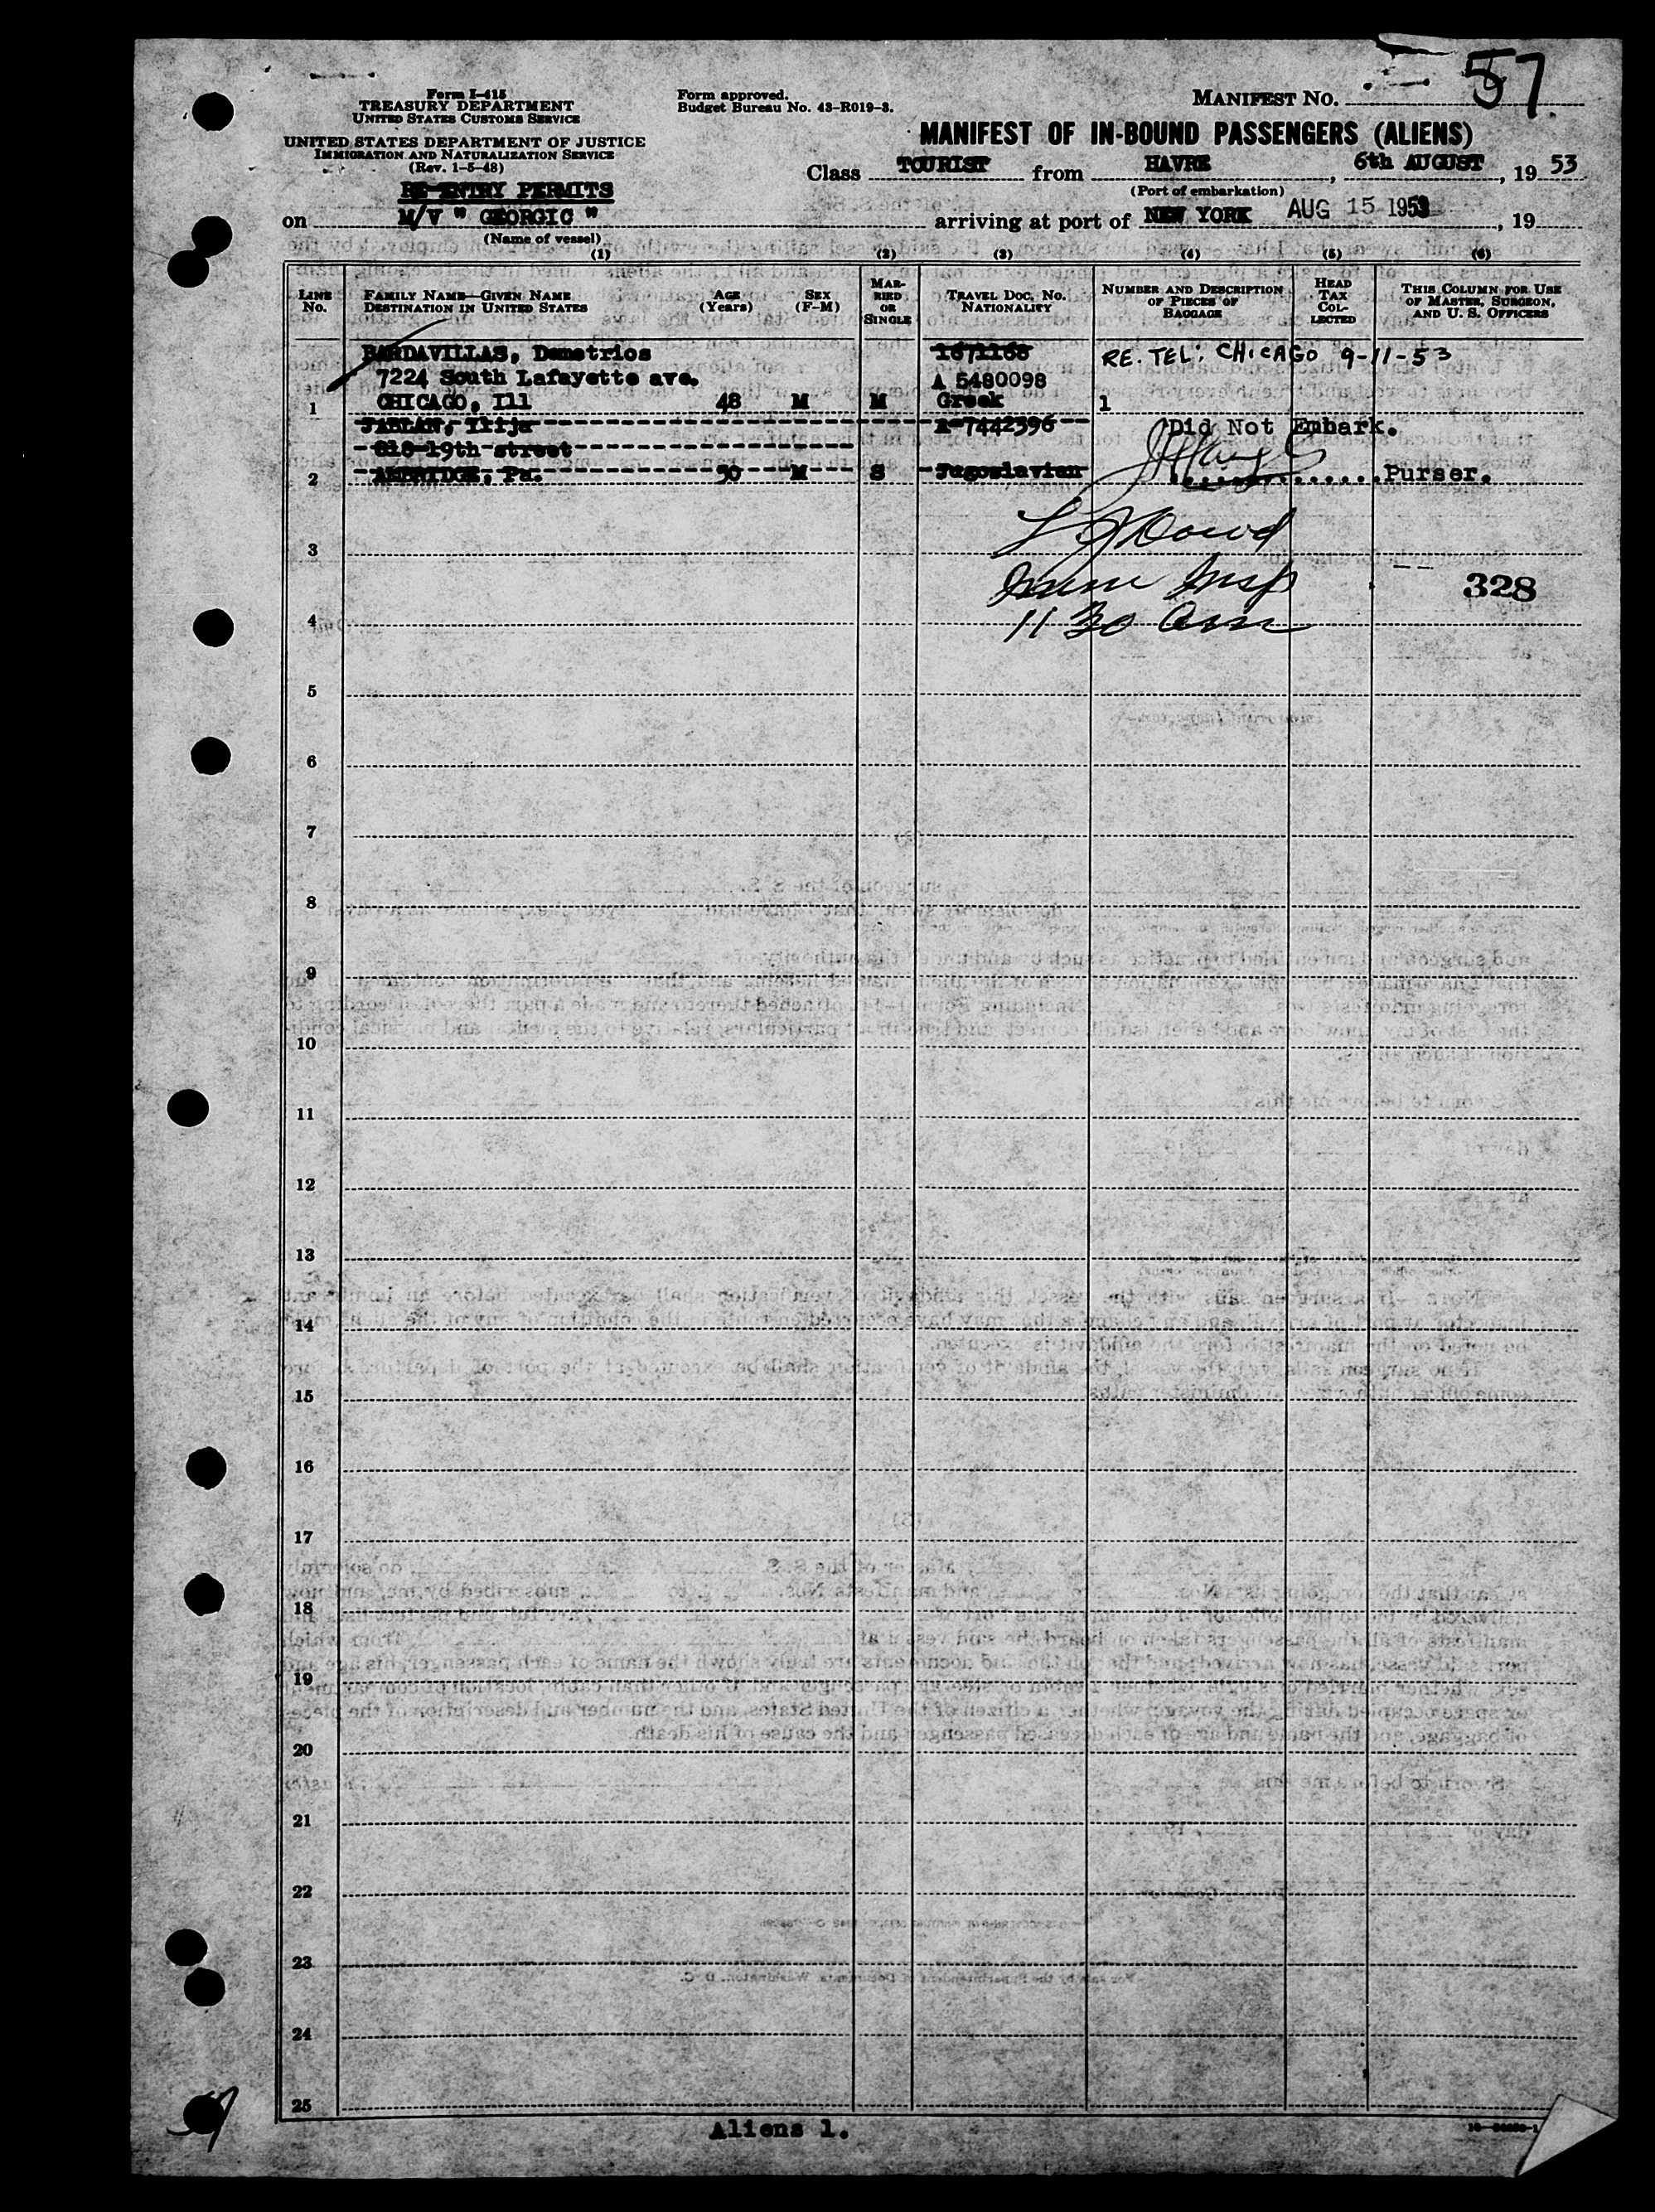 57
Form I-415
TREASURY DEPARTMENT
UNITED STATES CUSTOMS SERVICE
UNITED STATES DEPARTMENT OF JUSTICE
IMMIGRATION AND NATURALIZATION SERVICE
(Rev. 1-5-48)
Form approved.
Budget Bureau No. 43-R019-3.
MANIFEST NO.
MANIFEST OF IN-BOUND PASSENGERS (ALIENS)
Class TOURIST from HAVRE, 6th AUGUST, 19 53
(Port of embarkation)
RE-ENTRY PERMITS
on M/V " GEORGIC " arriving at port of NEW YORK AUG 15 1953, 19
(Name of vessel)
(1) (2) (3) (4) (5) (6)
LINE NO.
FAMILY NAME—GIVEN NAME
DESTINATION IN UNITED STATES
AGE (Years)
SEX (F-M)
MARRIED OR SINGLE
TRAVEL DOC. NO.
NATIONALITY
NUMBER AND DESCRIPTION OF PIECES OF BAGGAGE
HEAD TAX COLLECTED
THIS COLUMN FOR USE OF MASTER, SURGEON, AND U. S. OFFICERS
BARDAVILLAS, Demetrios 1671168 RE. TEL: CHICAGO 9-11-53
7224 South Lafayette ave. A 5480098
1 CHICAGO, Ill 48 M M Greek 1
JABLAN, Ilija A-7442396 Did Not Embark.
818-19th street
2 AMBRIDGE, Pa. 50 M S Jugoslavian Purser.
3
Dowd
Imm Insp
328
4 11 30 am
5
6
7
8
9
10
11
12
13
14
15
16
17
18
19
20
21
22
23
24
25
Aliens 1.